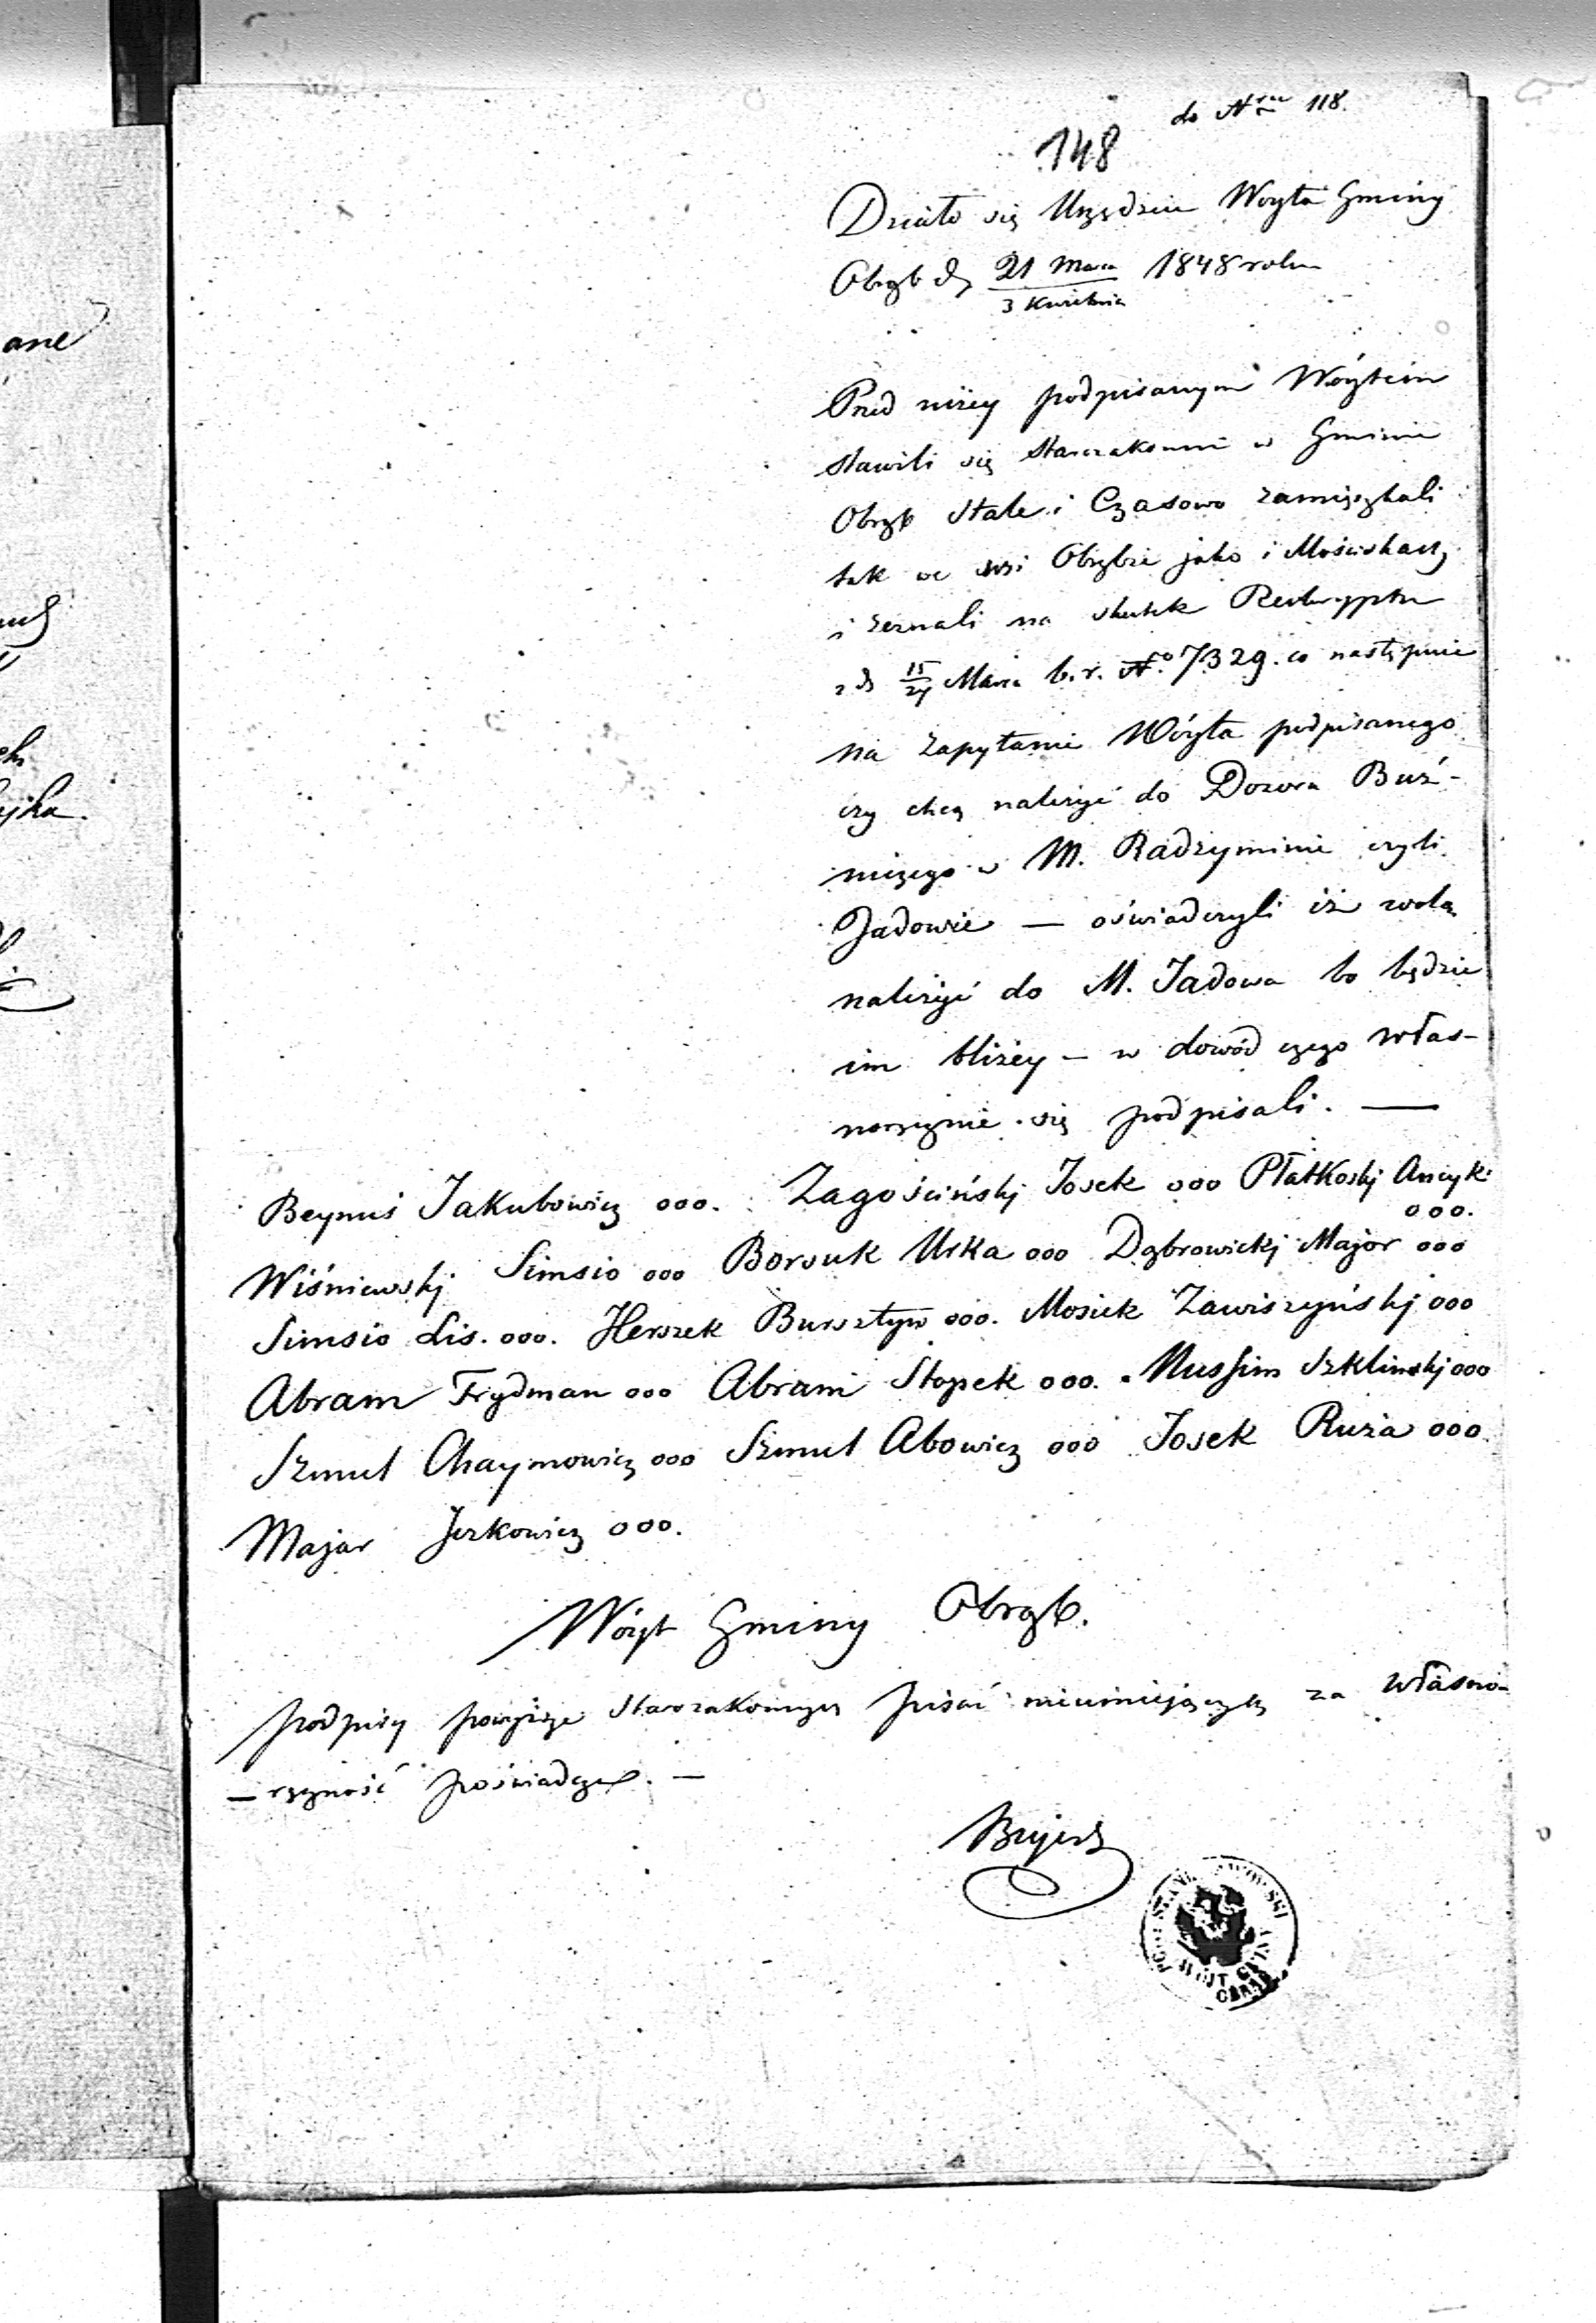 do Nru 118.
148
Działo się Urzędzie Woyta Gminy
Obrąb d. 21 Marca / 3 Kwietnia 1848 roku
Przed niżey podpisanym Wóytem
stawili się Starozakonni w Gminie
Obrąb Stale i Czasowo zamięszkali
tak we wsi Obrębie jako i Mościskach
i zeznali na skutek Reskryptu
z d. 15/27 Marca b.r. No. 7329. co następuie
na zapytanie Wóyta podpisanego
czy chcą należyć do Dozoru Buź-
niczego w M. Radzyminie czyli
Jadowie — oświadczyli iż wolą
należyć do M. Jadowa bo będzie
im bliżey — w dowód czego włas-
noręcznie się podpisali. —
Beynus Jakubowicz ooo. Zagościński Josek ooo Płatkoskj Ancyk
ooo.
Wiśniewskj Simsio ooo Borsuk Urka ooo Dąbrowickj Major ooo
Simsio Lis. ooo. Herszek Bursztyn ooo. Mosiek Zawiszyńskj ooo
Abram Frydman ooo Abram Stopek ooo. Nussim Szklinskj ooo
Szmul Chaymowicz ooo Szmul Abowicz ooo Josek Ruża ooo.
Majar Jerkowicz ooo.
Wóyt Gminy Obrąb.
podpisy powyższe Starozakonnych pisać nieumiejących za własno-
— ręczność poświadcza. —
WÓJT GMINY